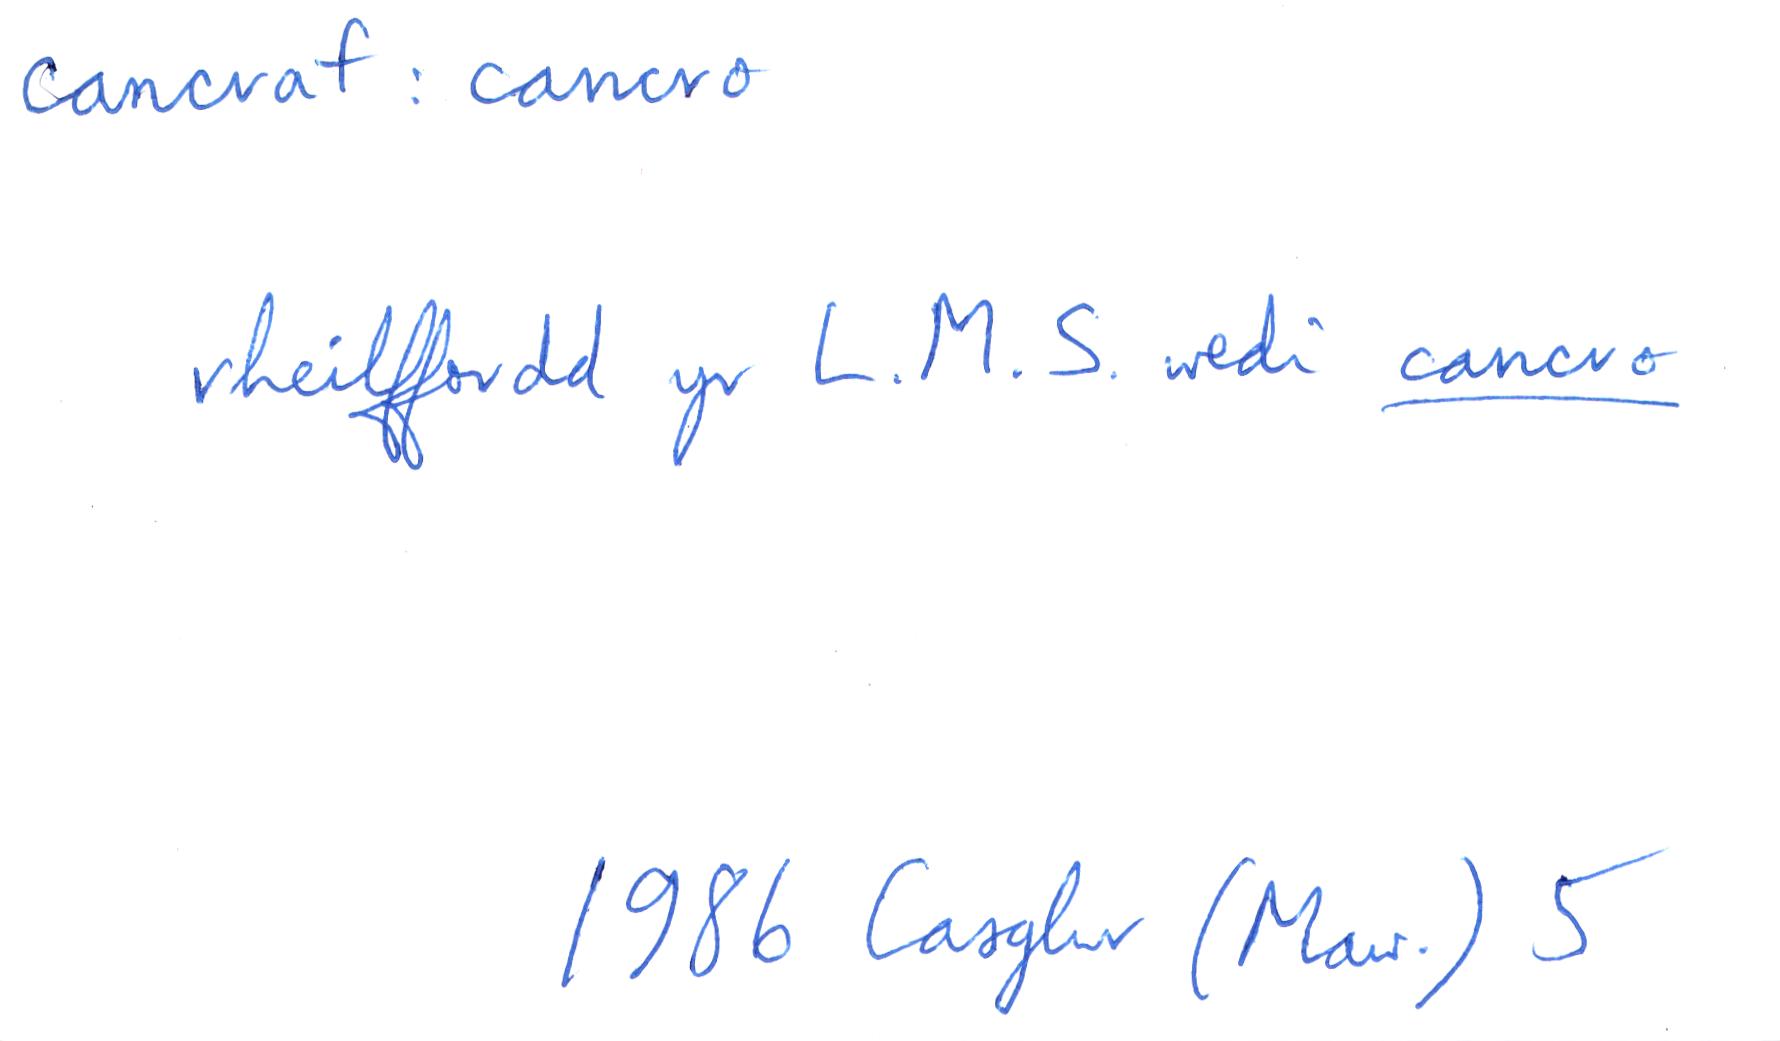 cancraf : cancro
rheilffordd yr L.M.S. wedi cancro
1986 Casglwr (Maw.) 5